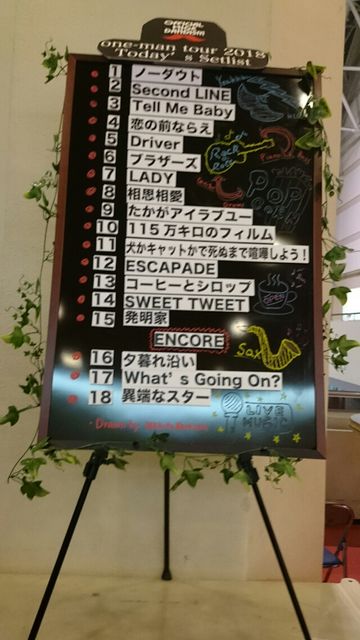 OFFICIAL
HIGE
DANDISM
one-man tour 2018
Today's Setlist
1 ノーダウト
2 Second LINE
3 Tell Me Baby
4 恋の前ならえ
5 Driver
6 ブラザーズ
7 LADY
8 相思相愛
9 たかがアイラブユー
10 115万キロのフィルム
11 犬かキャットかで死ぬまで喧嘩しよう!
12 ESCAPADE
13 コーヒーとシロップ
14 SWEET TWEET
15 発明家
ENCORE
16 夕暮れ沿い
17 What's Going On?
18 異端なスター
ROCK
POP
Sax
LIVE
MUSIC